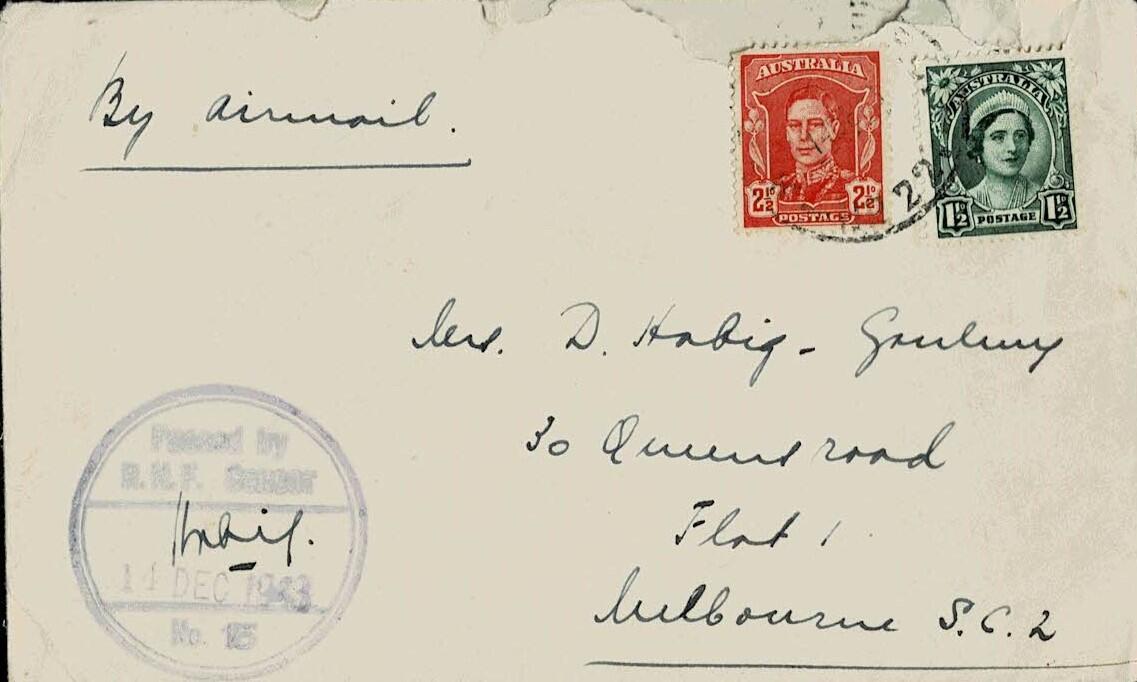 By airmail.
AUSTRALIA
2½D 2½D
POSTAGE
AUSTRALIA
1½D POSTAGE 1½D
22
Mrs. D. Habig - Goulmy
30 Queens road
Flat 1
Melbourne S.C.2
Passed by
Censor
Habig.
14 DEC 1943
No. 15